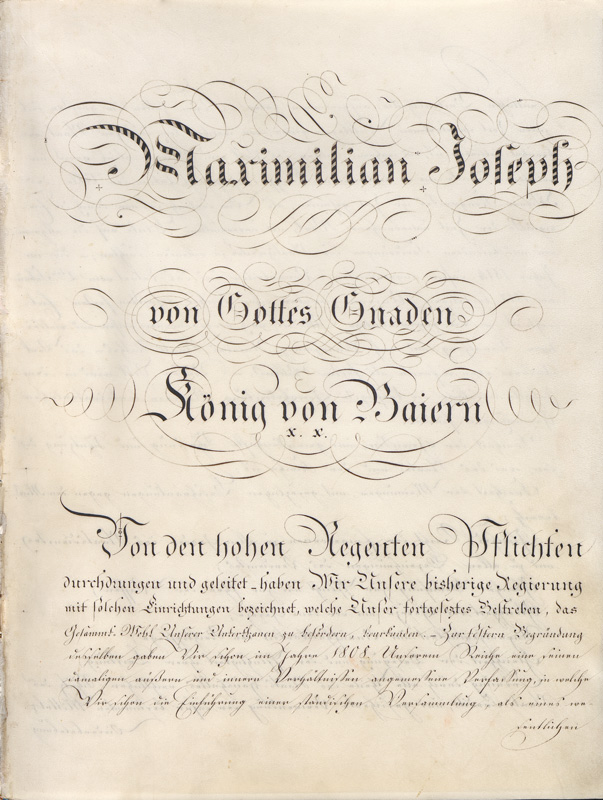 Maximilian Joseph
von Gottes Gnaden
König von Baiern
x. x.
Von den hohen Regenten Pflichten
durchdrungen und geleitet – haben Wir Unsere bisherige Regierung
mit solchen Einrichtungen bezeichnet, welche Unser fortgeseztes Bestreben, das
Gesammt-Wohl Unserer Unterthanen zu befördern, beurkunden. – Zur festern Begründung
desselben gaben Wir schon im Jahre 1808 Unserem Reiche eine seinen
damaligen äussern und innern Verhältnissen angemessene Verfassung, in welche
Wir schon die Einführung einer ständischen Versammlung, als eines we-
sentlichen